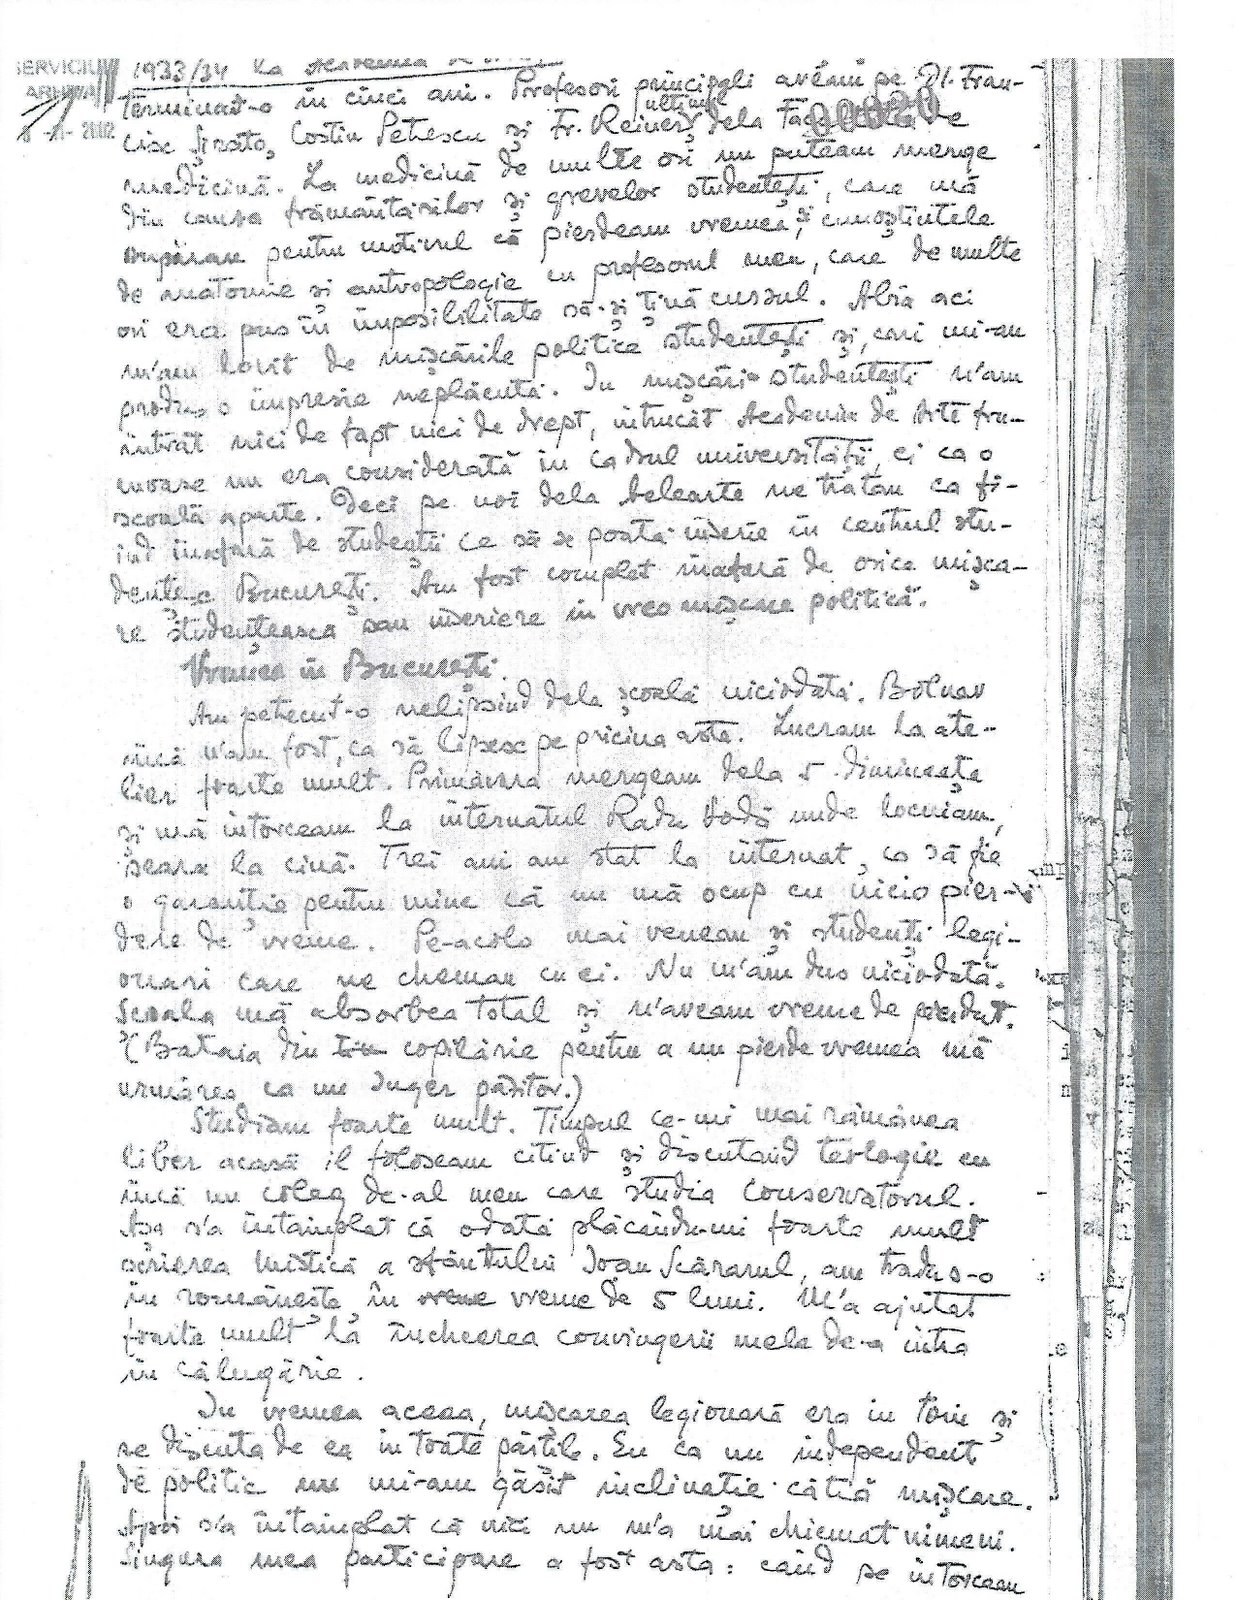 SERVICIUL
ARHIVA
1933/34 la Academia
terminat-o în cinci ani. Profesori principali aveam pe Dl. Fran-
cisc Șirato, Costin Petrescu și Fr. Reiner ultimul dela Facultatea de
medicină. La medicină de multe ori nu puteam merge
din cauza frământărilor și grevelor studențești, care mă
supărau pentru motivul că pierdeam vremea, și cunoștintele
de anatomie și antropologie cu profesorul meu, care de multe
ori era pus în imposibilitate să-și țină cursul. Abia aci
m'am lovit de mișcările politice studentești și, cari mi-au
produs o impresie neplăcută. In mișcări studentești n'am
intrat nici de fapt nici de drept, intrucât Academia de Arte fru-
moase nu era considerată in cadrul universității, ci ca o
scoală aparte. Deci pe noi dela belearte ne tratau ca fi-
ind inafară de studenții ce să se poată inscrie în centrul stu-
dențesc București. Am fost complet inafară de orice mișca-
re studențească sau inscriere in vreo mișcare politică.
Vremea in București.
Am petrecut-o nelipsind dela școală niciodată. Bolnav
încă n'am fost, ca să lipsesc pe pricina asta. Lucram la ate-
lier foarte mult. Primăvara mergeam dela 5 dimineața
și mă întorceam la internatul Radu Vodă unde locuiam,
seara la cină. Trei ani am stat la internat, ca să fie
o garanție pentru mine că nu mă ocup cu nicio pier-
dere de vreme. Pe-acolo mai veneau și studenți legi-
onari care ne chemau cu ei. Nu m'am dus niciodată.
Scoala mă absorbea total și n'aveam vreme de pierdut.
(Bataia din copilărie pentru a nu pierde vremea mă
urmărea ca un înger păzitor.)
Studiam foarte mult. Timpul ce-mi mai rămânea
liber acasă il foloseam citind și discutand teologie cu
încă un coleg de-al meu care studia Conservatorul.
Așa s'a întamplat că odată plăcându-mi foarte mult
scrierea mistică a sfântului Ioan Scărarul, am tradus-o
în românește în vreme vreme de 5 luni. M'a ajutat
foarte mult la încheerea convingerii mele de-a intra
în călugărie.
In vremea aceea, mișcarea legionară era in toiu și
se discuta de ea in toate părtile. Eu ca un independent
de politic nu mi-am găsit inclinație cătră mișcare.
Apoi s'a întamplat că nici nu m'a mai chiemat nimeni.
Singura mea participare a fost asta: când se intorceau